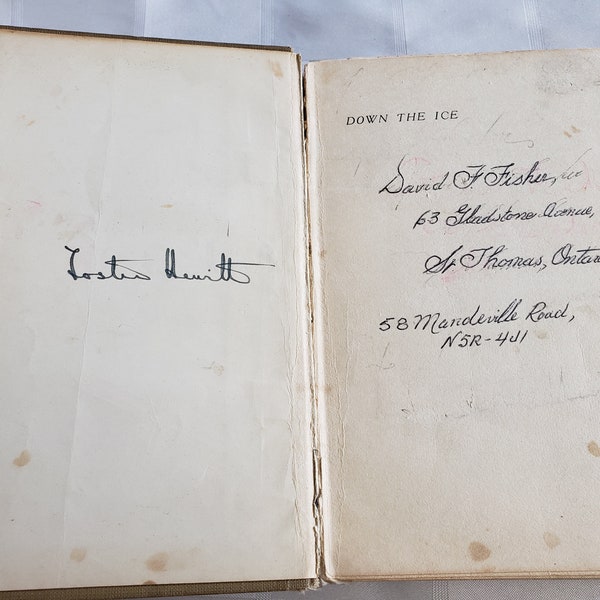 Foster Hewitt
DOWN THE ICE
David F. Fisher,
63 Gladstone Avenue,
St Thomas, Ontar
58 Mandeville Road,
N5R-4J1